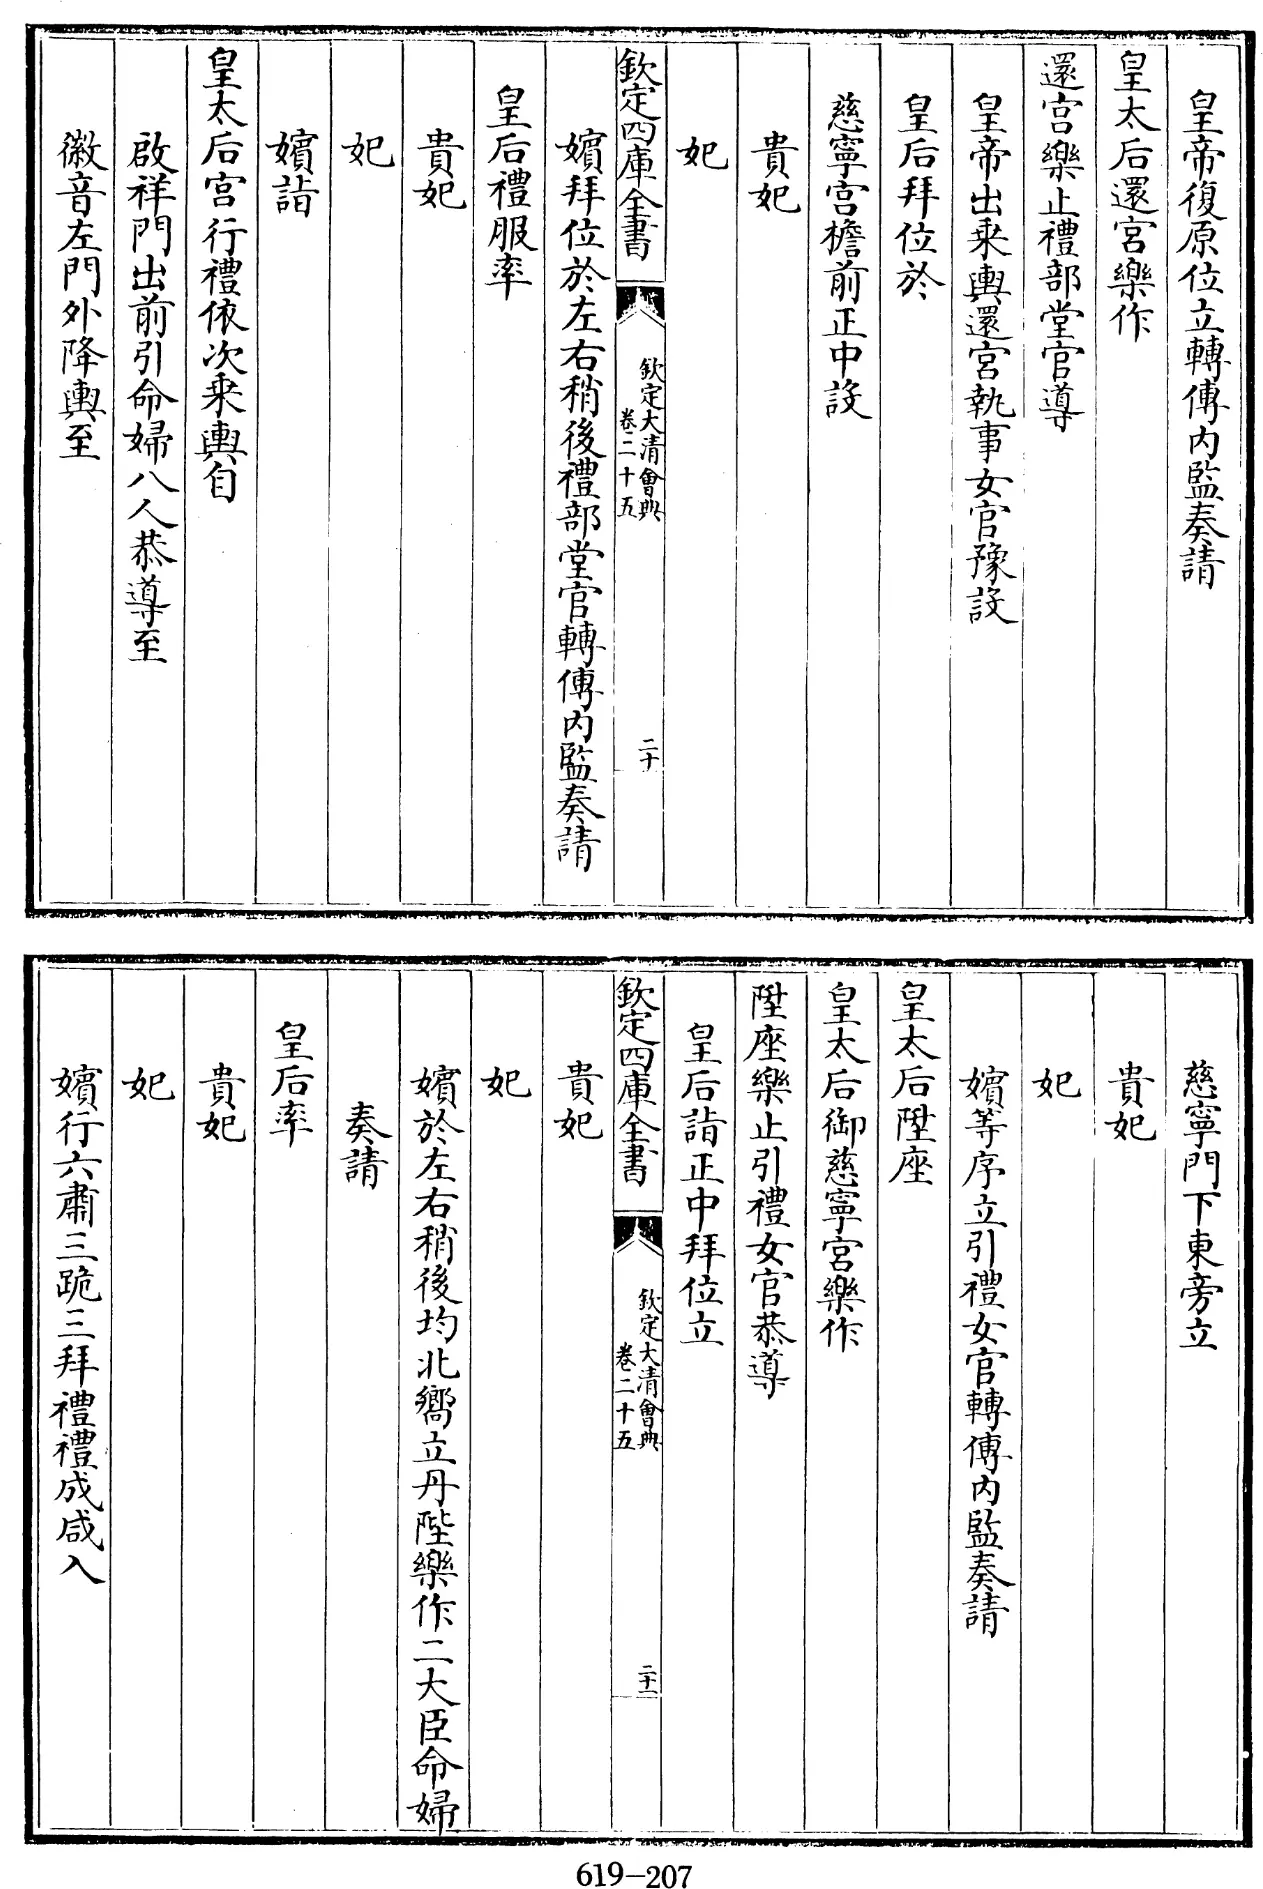 皇帝復原位立轉傳内監奏請
皇太后還宮樂作
還宮樂止禮部堂官導
皇帝出乘輿還宮執事女官豫設
皇后拜位於
慈寧宮檐前正中設
貴妃
妃
欽定四庫全書
欽定大清會典
卷二十五
二十
嬪拜位於左右稍後禮部堂官轉傳内監奏請
皇后禮服率
貴妃
妃
嬪詣
皇太后宮行禮依次乘輿自
啟祥門出前引命婦八人恭導至
徽音左門外降輿至
慈寧門下東旁立
貴妃
妃
嬪等序立引禮女官轉傳内監奏請
皇太后陞座
皇太后御慈寧宮樂作
陞座樂止引禮女官恭導
皇后詣正中拜位立
欽定四庫全書
欽定大清會典
卷二十五
二十一
貴妃
妃
嬪於左右稍後均北嚮立丹陛樂作二大臣命婦
奏請
皇后率
貴妃
妃
嬪行六肅三跪三拜禮禮成咸入
619-207